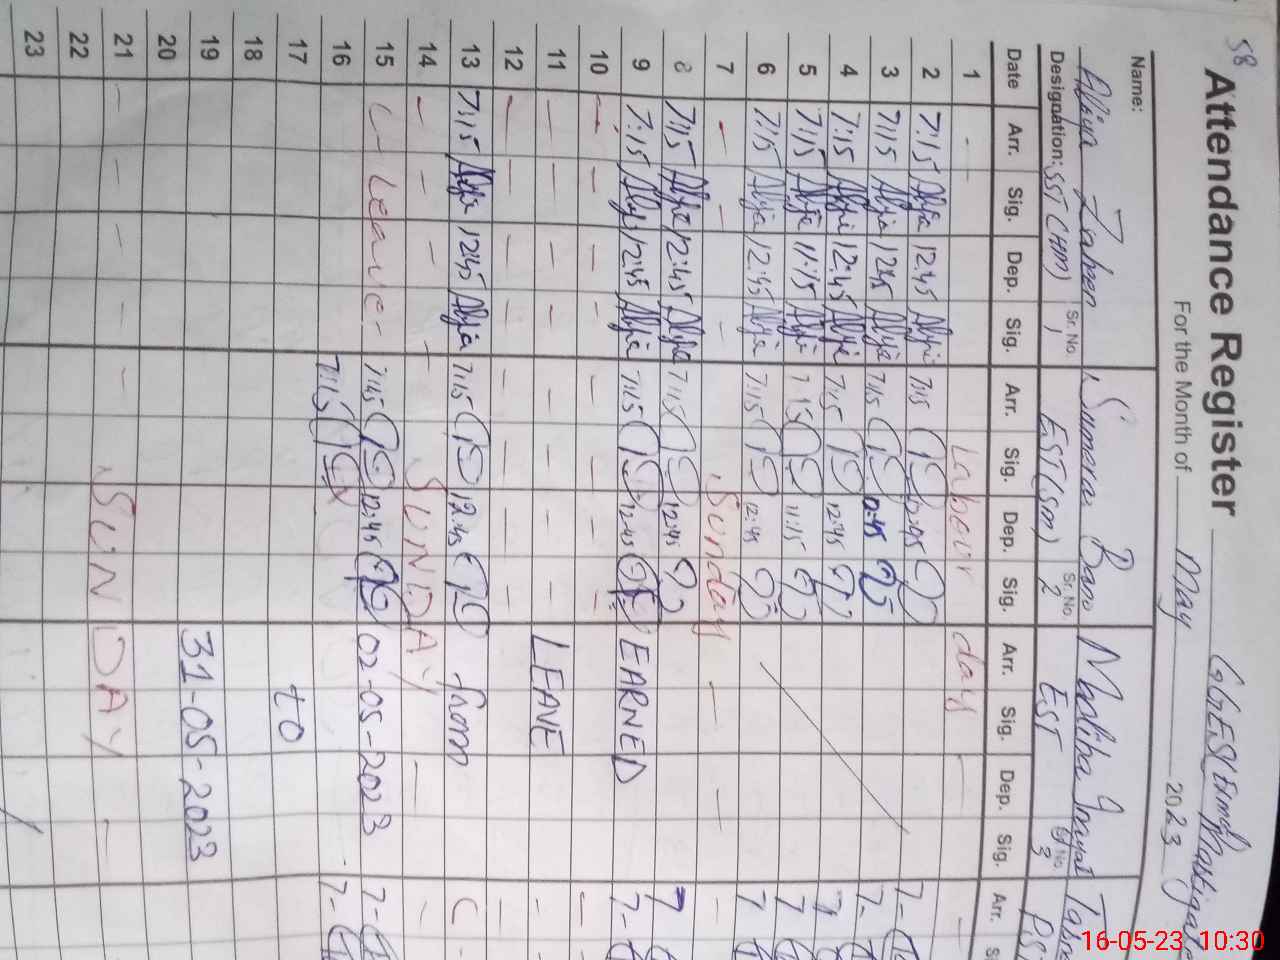 58
Attendance Register
For the Month of May 2023
Name: Aliya Zaben Sumera Bano Maliha Inayat
Designation: SST (HM) Sr. No. 1 EST (sm) Sr. No. 2 EST Sr. No. 3
Date Arr. Sig. Dep. Sig. Arr. Sig. Dep. Sig. Arr. Sig. Dep. Sig. Arr.
1 - - Labour days -
2 7:15 Aliya 12:45 Aliya 7:15 12:45 7-
3 7:15 Aliya 12:45 Aliya 7:15 12:45 7-
4 7:15 Aliya 12:45 Aliya 7:15 12:45 7
5 7:15 Aliya 11:15 Aliya 7:15 11:15 7
6 7:15 Aliya 12:45 Aliya 7:15 12:45 7
7 - - - Sunday - - -
8 7:15 Aliya 12:45 Aliya 7:15 12:45 7
9 7:15 Aliya 12:45 Aliya 7:15 12:45 EARNED 7-
10 - - - - - - - -
11 - - - - - - - - LEAVE -
12 - - - - - - - - -
13 7:15 Aliya 12:45 Aliya 7:15 12:45 from
14 - - - - SUNDAY - -
15 - Leave - 7:45 12:45 02-05-2023 7-
16 7:15 7-
17 to
18
19 31-05-2023
20
21 - - - - - SUNDAY -
22
23
16-05-23 10:30